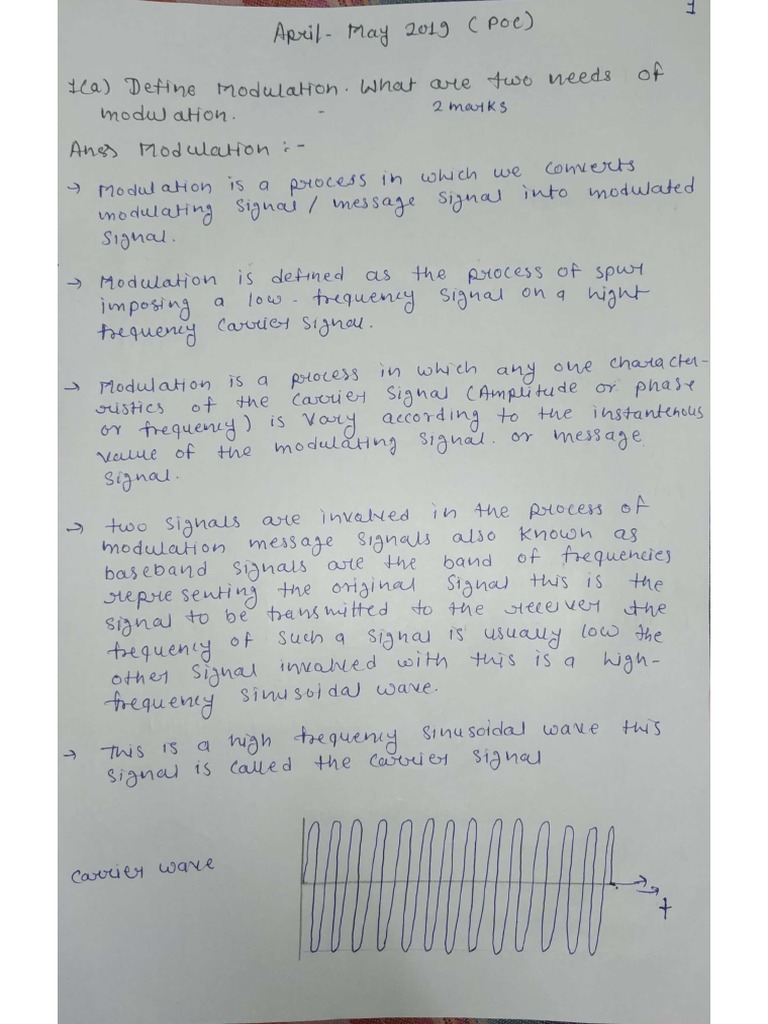 1
April - May 2019 (POC)
1(a) Define Modulation. What are two needs of
modulation. - 2 marks
Ans) Modulation :-
→ Modulation is a process in which we converts
modulating signal / message signal into modulated
signal.
→ Modulation is defined as the process of spur
imposing a low-frequency signal on a hight
frequency carrier signal.
→ Modulation is a process in which any one character-
ristics of the carrier signal (Amplitude or phase
or frequency) is vary according to the instantenous
value of the modulating signal. or message
signal.
→ two signals are involved in the process of
modulation message signals also known as
baseband signals are the band of frequencies
representing the original signal this is the
signal to be transmitted to the receiver the
frequency of such a signal is usually low the
other signal involved with this is a high-
frequency sinusoidal wave.
→ This is a high frequency sinusoidal wave this
signal is called the carrier signal
carrier wave
t